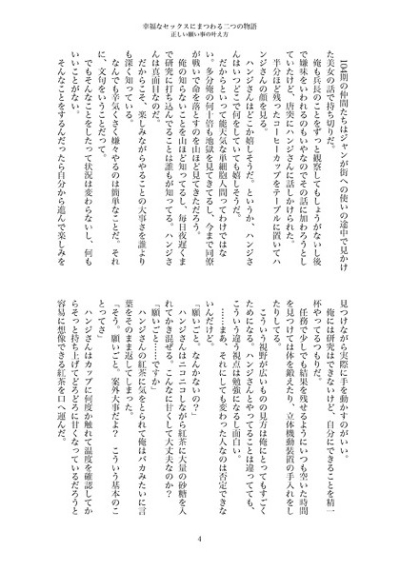 幸福なセックスにまつわる二つの物語
正しい願い事の叶え方
104期の仲間たちはジャンが街への使いの途中で見かけ
た美女の話で持ち切りだ。
俺も兵長のことをずっと観察してもしょうがないし後
で嫌味をいわれるのもいやなのでその話に加わろうとし
ていたけど、唐突にハンジさんに話しかけられた。
半分ほど残ったコーヒーカップをテーブルに置いてハ
ンジさんの顔を見る。
ハンジさんはどこか嬉しそうだ。というか、ハンジさ
んはいつどこで何をしていても嬉しそうだ。
だからといって能天気な単細胞人間ってわけではな
い、多分俺の何十倍も地獄を見てきてるし、今まで同僚
が戦いで命を落とすのを山ほど見てきただろう。
俺の知らないことを山ほど知ってるし、毎日夜遅くま
で研究に打ち込んでることは誰もが知ってる。ハンジさ
んは真面目なのだ。
だからこそ、楽しみながらやることの大事さを誰より
も深く知っている。
なんでも辛気くさく嫌々やるのは簡単なことだ。それ
に、文句をいうことだって。
でもそんなことをしたって状況は変わらないし、何も
いいことがない。
そんなことをするんだったら自分から進んで楽しみを
見つけながら実際に手を動かすのがいい。
俺には研究はできないけど、自分にできることを精一
杯やってるつもりだ。
任務で少しでも結果を残せるようにいつも空いた時間
を見つけては体を鍛えたり、立体機動装置の手入れをし
たりしてる。
こういう視野が広いものの見方は俺にとってもすごく
ためになる。ハンジさんとやってることは違ってても、
こういう違う視点は勉強になるし面白い。
……まあ、それにしても変わった人なのは否定できな
いんだけど。
「願いごと、なんかないの？」
ハンジさんはニコニコしながら紅茶に大量の砂糖を入
れてかき混ぜる。こんなに甘くして大丈夫なのか？
「願いごと……ですか」
ハンジさんの紅茶に気をとられて俺はバカみたいに言
葉をそのまま返してしまった。
「そう。願いごと。案外大事だよ？　こういう基本のこ
とってさ」
ハンジさんはカップに何度か触れて温度を確認してか
らそっと持ち上げてどろどろに甘くなっているだろうと
容易に想像できる紅茶を口へ運んだ。
4